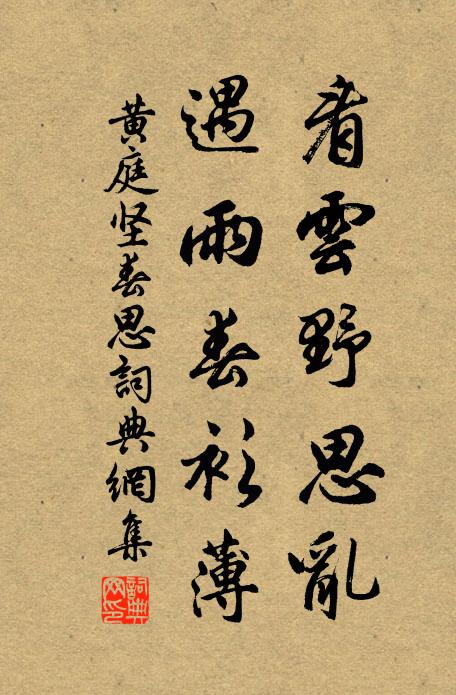 看雲野思亂
遇雨春衫薄
黄庭坚春思詞典網集
詞典网印